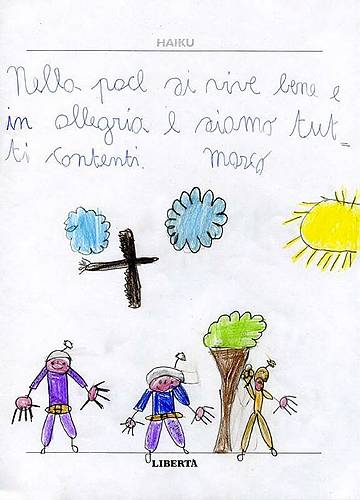 HAIKU
Nella pace si vive bene e
in allegria e siamo tut=
ti contenti. Marco
LIBERTÀ